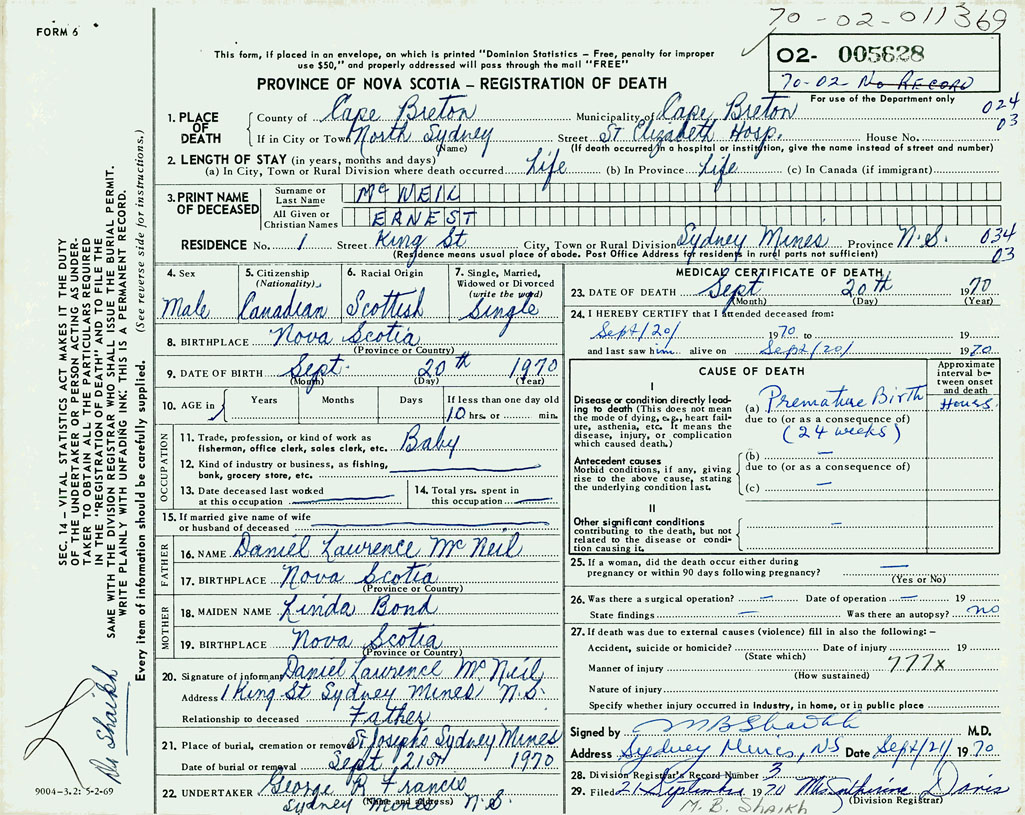 FORM 6
70-02-011369
This form, if placed in an envelope, on which is printed "Dominion Statistics – Free, penalty for improper
use $50," and properly addressed will pass through the mail "FREE"
02- 005628
70-02 No RECORD
For use of the Department only
PROVINCE OF NOVA SCOTIA – REGISTRATION OF DEATH
1. PLACE OF DEATH
County of Cape Breton Municipality of Cape Breton 024
03
If in City or Town North Sydney Street St Elizabeth Hosp. House No.
(Name) (If death occurred in a hospital or institution, give the name instead of street and number)
2. LENGTH OF STAY (in years, months and days)
(a) In City, Town or Rural Division where death occurred Life (b) In Province Life (c) In Canada (if immigrant)
3. PRINT NAME OF DECEASED
Surname or Last Name McNEIL
All Given or Christian Names ERNEST
RESIDENCE No. 1 Street King St City, Town or Rural Division Sydney Mines Province N.S. 034
03
(Residence means usual place of abode. Post Office Address for residents in rural parts not sufficient)
4. Sex
Male
5. Citizenship
(Nationality)
Canadian
6. Racial Origin
Scottish
7. Single, Married,
Widowed or Divorced
(write the word)
Single
8. BIRTHPLACE Nova Scotia
(Province or Country)
9. DATE OF BIRTH Sept. 20th 1970
(Month) (Day) (Year)
10. AGE in
Years Months Days If less than one day old
10 hrs. or min.
OCCUPATION
11. Trade, profession, or kind of work as
fisherman, office clerk, sales clerk, etc. Baby
12. Kind of industry or business, as fishing,
bank, grocery store, etc.
13. Date deceased last worked
at this occupation
14. Total yrs. spent in
this occupation
15. If married give name of wife
or husband of deceased
FATHER
16. NAME Daniel Lawrence McNeil
17. BIRTHPLACE Nova Scotia
(Province or Country)
MOTHER
18. MAIDEN NAME Linda Bond
19. BIRTHPLACE Nova Scotia
(Province or Country)
20. Signature of informant Daniel Lawrence McNeil
Address 1 King St Sydney Mines N.S.
Relationship to deceased Father
21. Place of burial, cremation or removal St Joseph's Sydney Mines
Date of burial or removal Sept 21st 1970
22. UNDERTAKER George R Francis
(Name and address)
Sydney Mines N.S.
MEDICAL CERTIFICATE OF DEATH
23. DATE OF DEATH Sept 20th 1970
(Month) (Day) (Year)
24. I HEREBY CERTIFY that I attended deceased from:
Sept/20/ 1970 to 19
and last saw him alive on Sept/20/ 1970
CAUSE OF DEATH
Approximate interval between onset and death
I
Disease or condition directly leading to death (This does not mean the mode of dying, e.g., heart failure, asthenia, etc. It means the disease, injury, or complication which caused death.)
(a) Premature Birth Hours.
due to (or as a consequence of)
(24 weeks)
Antecedent causes
Morbid conditions, if any, giving rise to the above cause, stating the underlying condition last.
(b) –
due to (or as a consequence of)
(c) –
II
Other significant conditions
contributing to the death, but not related to the disease or condition causing it.
–
25. If a woman, did the death occur either during
pregnancy or within 90 days following pregnancy? –
(Yes or No)
26. Was there a surgical operation? – Date of operation – 19
State findings – Was there an autopsy? no
27. If death was due to external causes (violence) fill in also the following:–
Accident, suicide or homicide? Date of injury 19
(State which)
Manner of injury 777x
(How sustained)
Nature of injury
Specify whether injury occurred in Industry, in home, or in public place
Signed by M B Shaikh M.D.
Address Sydney Mines, NS Date Sept/21/ 1970
28. Division Registrar's Record Number 3
29. Filed 21 September 1970 Davis
(Division Registrar)
M. B. SHAIKH
SEC. 14 – VITAL STATISTICS ACT MAKES IT THE DUTY
OF THE UNDERTAKER OR PERSON ACTING AS UNDER-
TAKER TO OBTAIN ALL THE PARTICULARS REQUIRED
IN THE "REGISTRATION OF DEATH" AND TO FILE THE
SAME WITH THE DIVISION REGISTRAR WHO SHALL ISSUE THE BURIAL PERMIT.
WRITE PLAINLY WITH UNFADING INK: THIS IS A PERMANENT RECORD.
Every item of information should be carefully supplied. (See reverse side for instructions.)
Dr Shaikh
9004-3.2: 5-2-69